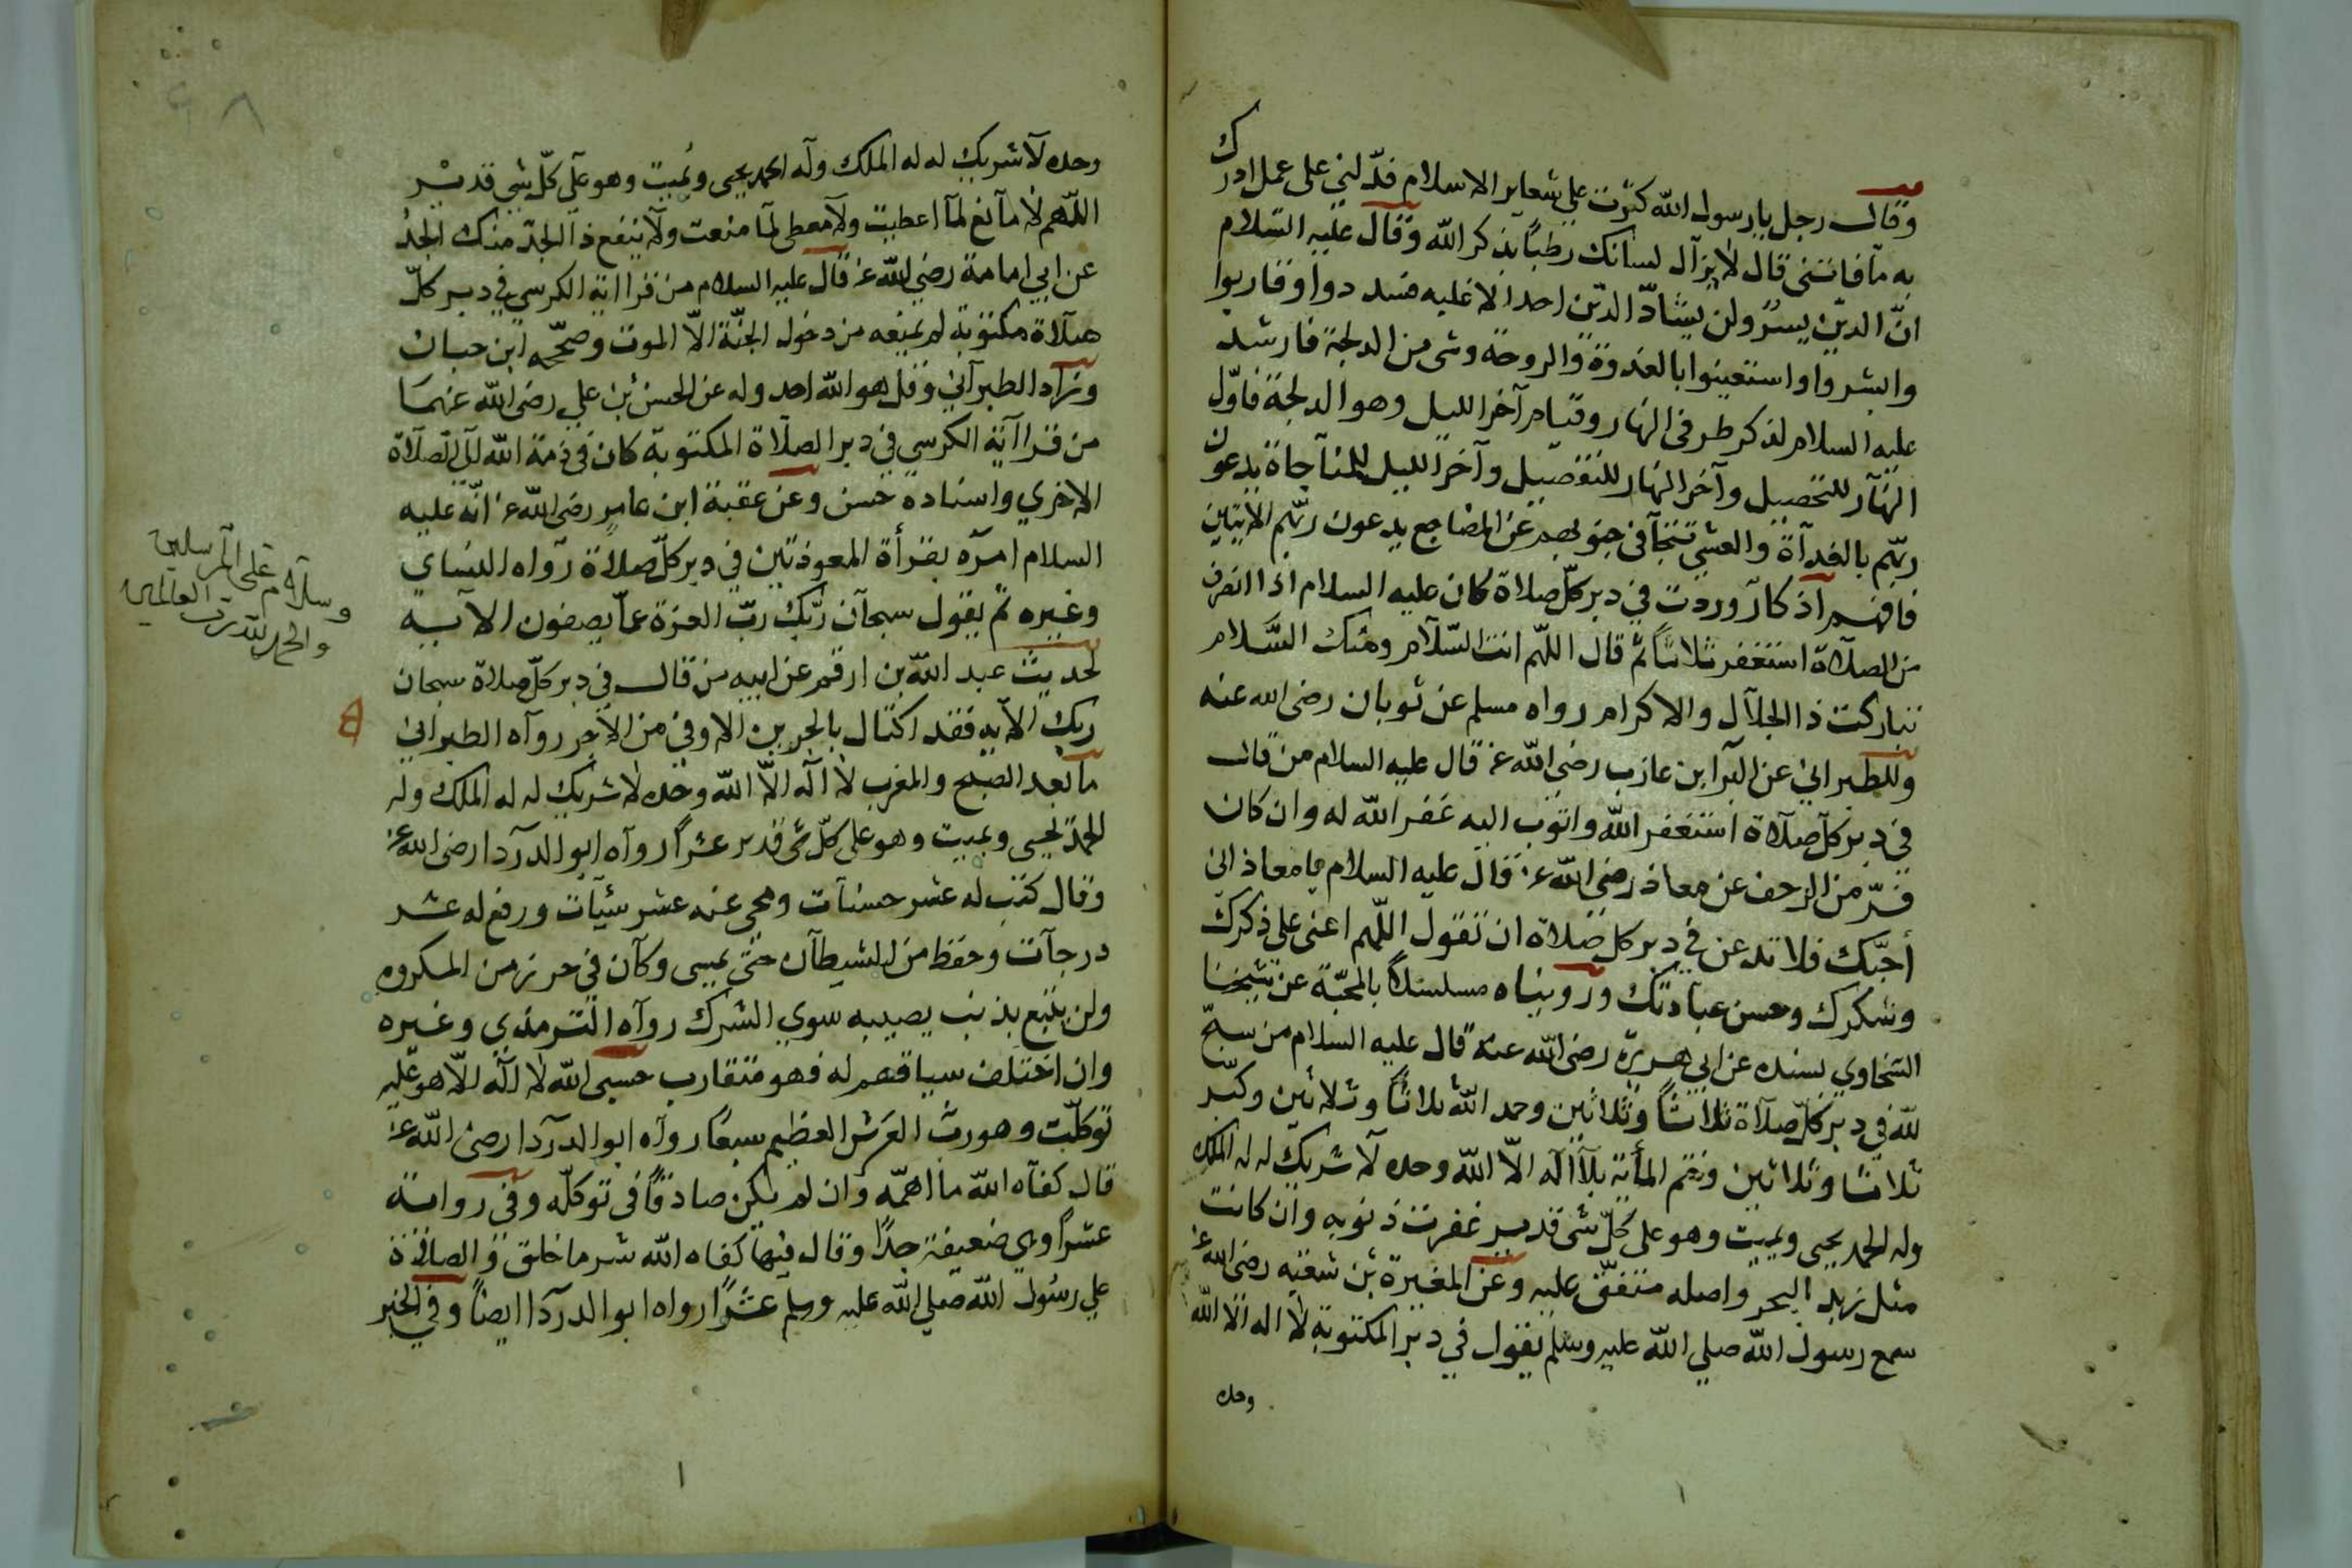 وقال رجل يا رسول الله كثرت علي شعاير الاسلام فدّلني على عمل ادرك
به ما فاتني قال لا يزال لسانك رطبا بذكر الله وقال عليه السلام
انّ الدين يسرٌ ولن يشادّ الدين احد الا غلبه فسددوا وقاربوا
وابشروا واستعينوا بالغدوة والروحة وشى من الدلجة فارشد
عليه السلام لذكر طرفى النهار وقيام آخر الليل وهو الدلجة فاوّل
النهار للتحصيل وآخر النهار للتفصيل وآخر الليل للمناجاة يدعون
ربّهم بالغداة والعشي تتجافى جنوبهم عن المضاجع يدعون ربّهم الايتين
فافهم اذكار وردت في دبر كلّ صلاة كان عليه السلام اذا انصرف
من الصلاة استغفر ثلاثاً ثم قال اللهم انت السّلام ومنك السّلام
تباركت ذا الجلال والاكرام رواه مسلم عن ثوبان رضى الله عنه
وللطبراني عن البرا ابن عازب رضى الله عنه قال عليه السلام من قال
في دبر كل صلاة استغفر الله واتوب اليه غفر الله له وان كان
فرّ من الزحف عن معاذ رضى الله عنه قال عليه السلام يا معاذ اني
أحبّك فلا تدعن في دبر كل صلاة ان تقول اللّهم اعنى على ذكرك
وشكرك وحسن عبادتك ورويناه مسلسلاً بالمحبّة عن شيخنا
السّخاوي بسنده عن ابي هريرة رضى الله عنه قال عليه السلام من سبّح
لله في دبر كلّ صلاة ثلاثاً وثلاثين وحمد الله ثلاثاً وثلاثين وكبّر
ثلاثا وثلاثين وختم المأية بلا اله الاّ الله وحده لا شريك له له الملك
وله الحمد يحيى ويميت وهو على كلّ شى قدير غفرت ذنوبه وان كانت
مثل زبد البحر واصله متفق عليه وعن المغيرة بن شعبه رضى الله عنه
سمع رسول الله صلي الله عليه وسلم يقول في دبر المكتوبة لا اله الا الله
وحده
وحده لا شريك له له الملك وله الحمد يحيى ويميت وهو على كلّ شي قدير
اللّهم لا مانع لما اعطيت ولا معطى لما منعت ولا ينفع ذا الجدّ منك الجدُ
عن ابي امامة رضي الله عنه قال عليه السلام من قرا اية الكرسي في دبر كلّ
صلاة مكتوبة لم يمنعه من دخول الجنّة الاّ الموت وصحّحه ابن حبان
وزاد الطبراني وقل هو الله احد وله عن الحسن بن علي رضى الله عنهما
من قرا آية الكرسي في دبر الصلاة المكتوبة كان في ذمة الله الى الصلاة
الاخري واسناده حسن وعن عقبة ابن عامر رضى الله عنه انّه عليه
السلام امره بقرأة المعوذتين في دبر كلّ صلاة رواه النساي
وغيره ثم يقول سبحان ربّك ربّ العزة عما يصفون الاية
لحديث عبد الله بن ارقم عن ابيه من قال في دبر كلّ صلاة سبحان
ربك الآية فقد اكتال بالجريب الاوفى من الاجر رواه الطبراني
ما بعد الصبح والمغرب لا اله الاّ الله وحده لا شريك له له الملك وله
الحمد يحيى ويميت وهو على كلّ شى قدير عشراً رواه ابو الدردا رضى الله عنه
وقال كتب له عشر حسنات ومحى عنه عشر سيّأت ورفع له عشر
درجات وحفظ من الشيطان حتى يمسى وكان في حرز من المكروه
ولن يتبع بذنب يصيبه سوى الشرك رواه الترمذي وغيره
وان اختلف سياقهم له فهو متقارب حسبى الله لا اله الاّ هو عليه
توكلّت وهو ربّ العرش العظيم سبعاً رواه ابو الدردا رضى الله عنه
قال كفاه الله ما اهمّه وان لم يكن صادقاً فى توكله وفى رواية
عشراً وهي ضعيفة جدّا وقال فيها كفاه الله شر ما خلق والصلاة
علي رسول الله صلي الله عليه وسلم عشراً رواه ابو الدردا ايضاً وفى الخبر
وسلام على المرسلين
والحمد لله رب العالمين